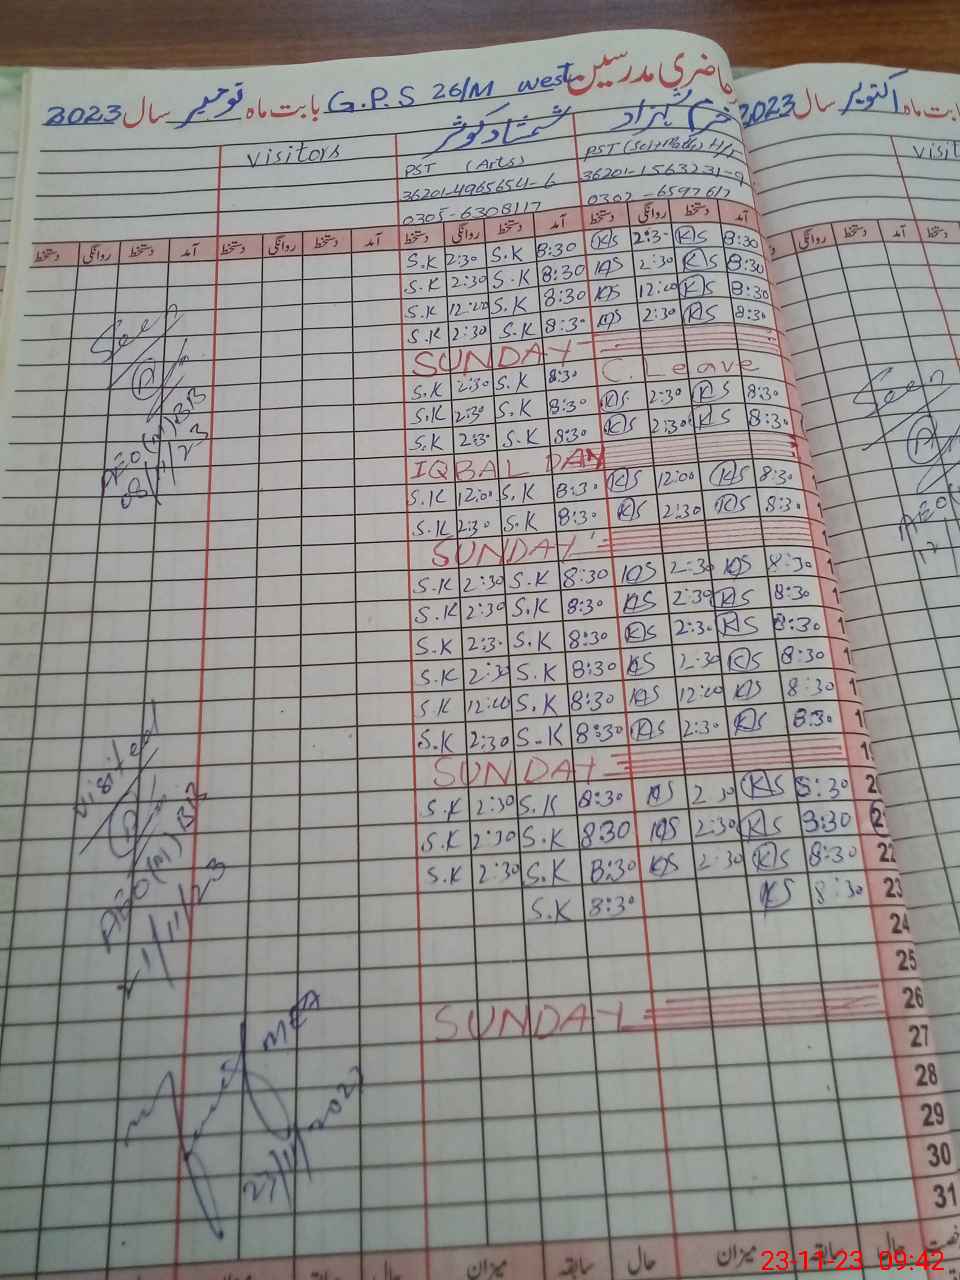 حاضری مدرسین G.P.S 26/M West بابت ماہ نومبر سال 2023
بابت ماہ اکتوبر سال 2023
خرم شہزاد شمشاد کوثر visitors
PST (Arts)
36201-4965654-6 36201-1563231-9
0305-6308117 0302-6597617
آمد دستخط روانگی دستخط آمد دستخط روانگی دستخط آمد دستخط روانگی دستخط آمد دستخط روانگی دستخط
S.K 2:30 S.K 8:30 KS 2:30 KS 8:30
S.K 2:30 S.K 8:30 KS 2:30 KS 8:30
S.K 12:00 S.K 8:30 KS 12:00 KS 8:30
S.K 2:30 S.K 8:30 KS 2:30 KS 8:30
SUNDAY
S.K 2:30 S.K 8:30 C. Leave
S.K 2:30 S.K 8:30 KS 2:30 KS 8:30
S.K 2:30 S.K 8:30 KS 2:30 KS 8:30
IQBAL DAY
S.K 12:00 S.K 8:30 KS 12:00 KS 8:30
S.K 2:30 S.K 8:30 KS 2:30 KS 8:30
SUNDAY
S.K 2:30 S.K 8:30 KS 2:30 KS 8:30
S.K 2:30 S.K 8:30 KS 2:30 KS 8:30
S.K 2:30 S.K 8:30 KS 2:30 KS 8:30
S.K 2:30 S.K 8:30 KS 2:30 KS 8:30
S.K 12:00 S.K 8:30 KS 12:00 KS 8:30
S.K 2:30 S.K 8:30 KS 2:30 KS 8:30
SUNDAY
S.K 2:30 S.K 8:30 KS 2:30 KS 8:30
S.K 2:30 S.K 8:30 KS 2:30 KS 8:30
S.K 2:30 S.K 8:30 KS 2:30 KS 8:30 22
S.K 8:30 KS 8:30 23
24
25
SUNDAY 26
27
28
29
30
31
Seen
AEO(M)BB
08/11/23
Visited
AEO(M)BB
21/11/23
MEA
23/11/2023
Seen
حال سابقہ میزان حال سابقہ میزان
23-11-23 09:42